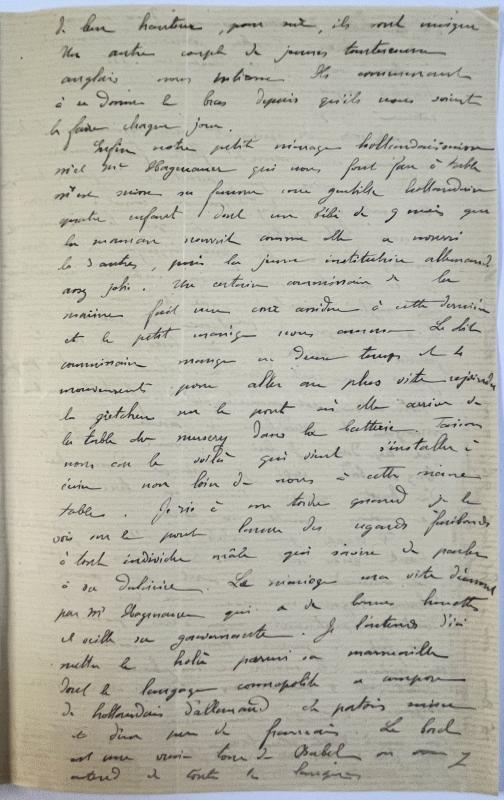 de leur hauteur, pour moi, ils sont uniques
Un autre couple de jeunes
anglais nous intéresse Ils commencent
à se donner le bras depuis qu'ils nous voient
le faire chaque jour.
Enfin notre petit ménage hollandais suisse
M et Mme Hagenauer qui nous font face à table
M est suisse sa femme une gentille hollandaise
quatre enfants dont un bébé de 9 mois que
la maman nourrit comme elle a nourri
les 3 autres, puis la jeune institutrice allemande
assez jolie. Un certain commissaire de la
marine fait une cour assidue à cette dernière
et le petit manège nous amuse Le dit
commissaire mange en deux temps et 4
mouvements pour aller au plus vite rejoindre
la gretchen sur le pont où elle arrive de
la table du nursery dans la batterie. Taisons
nous car le voilà qui vient s'installer à
écrire non loin de nous à cette même
table. Je ris à me tordre quand je le
vois sur le pont lancer des regards furibonds
à tout individu mâle qui s'avise de parler
à sa dulcinée. Le manège sera vite
par Mr Hagenauer qui a de bonnes lunettes
et veille sa gouvernante. Je l'entends d'ici
mettre le holà parmi sa marmaille
dont le langage cosmopolite se compose
de hollandais d'allemand de patois suisse
et d'un peu de français Le bord
est une vraie tour de Babel on y
entend de toutes les langues